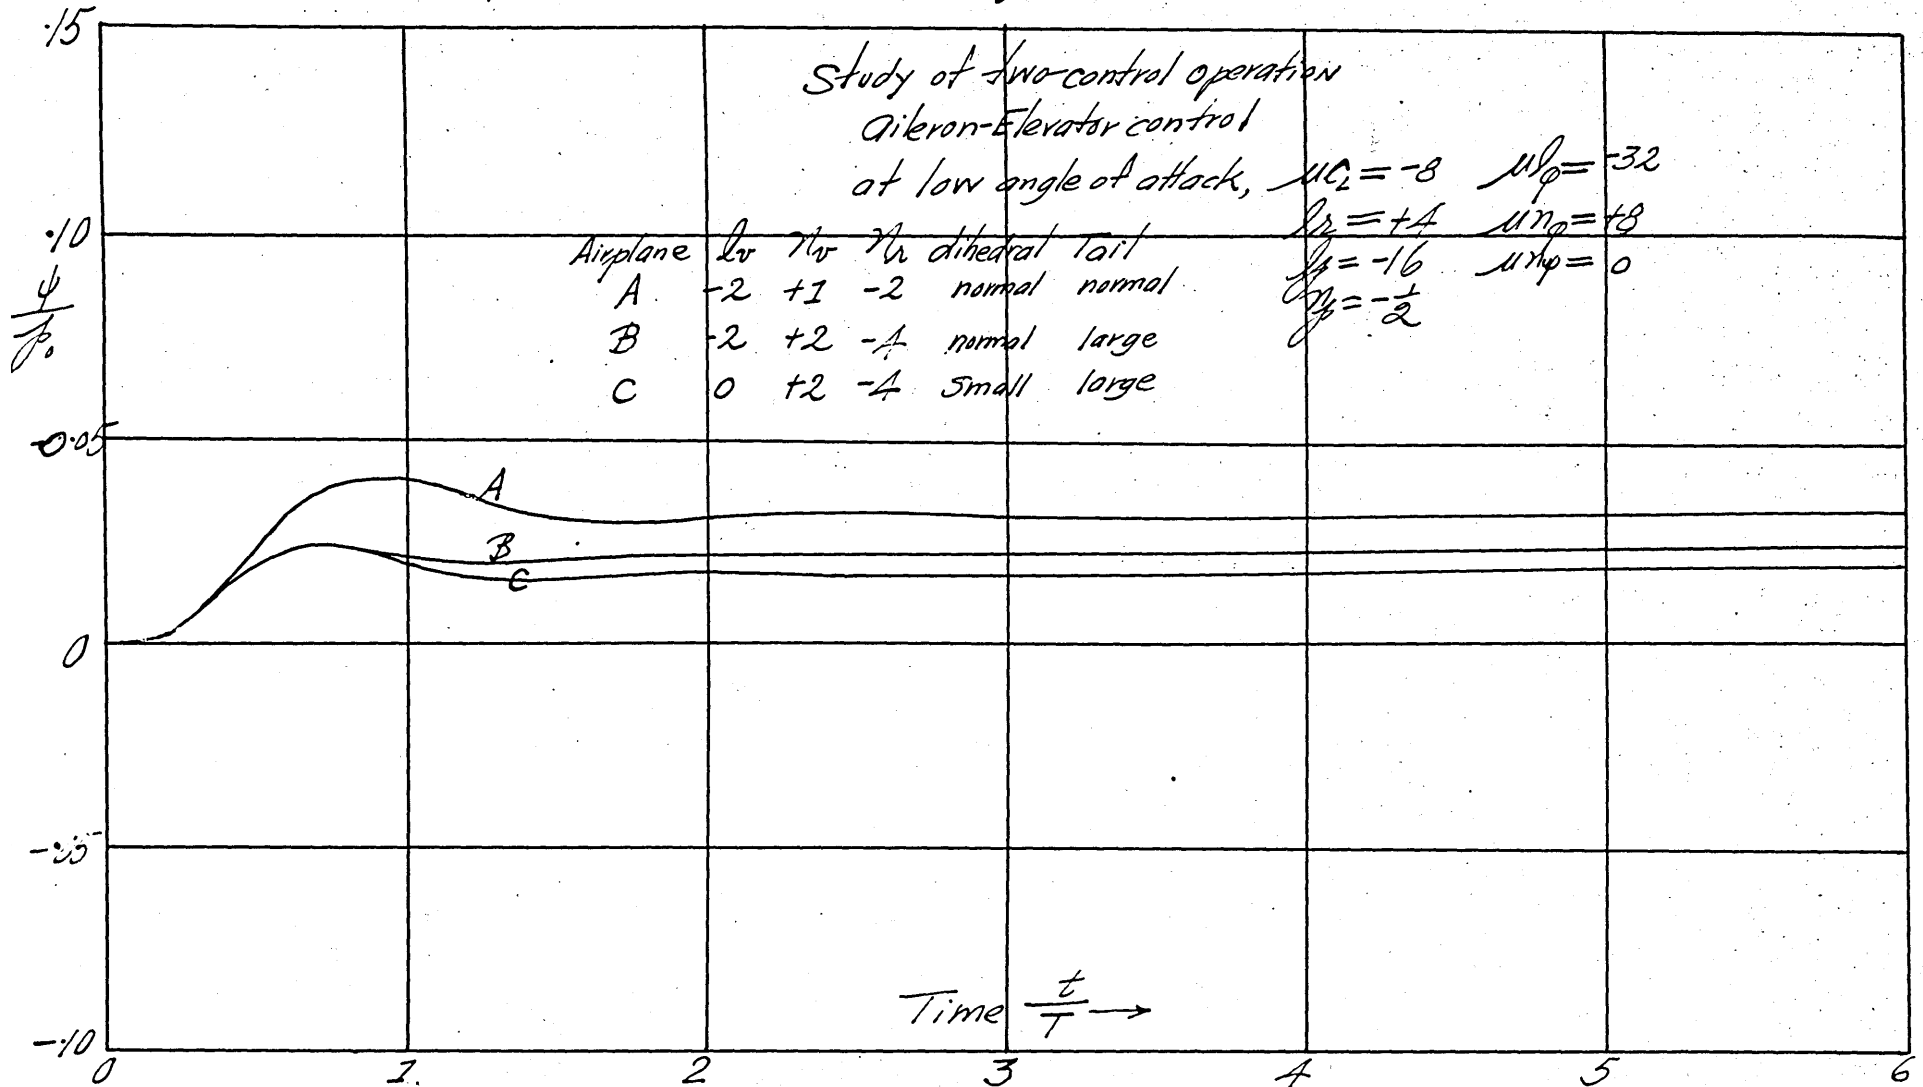 .15
Study of two-control operation
Aileron-Elevator control
at low angle of attack, μC_L = -8 μl_φ = -32
l_r = +4 μn_φ = +8
l_p = -16 μn_ψ = 0
n_p = -1/2
.10
Airplane l_v n_v n_r dihedral Tail
A -2 +1 -2 normal normal
B -2 +2 -4 normal large
C 0 +2 -4 small large
ψ/p_0
0.05
A
B
C
0
-.10
Time t/T →
0 1. 2 3 4 5 6